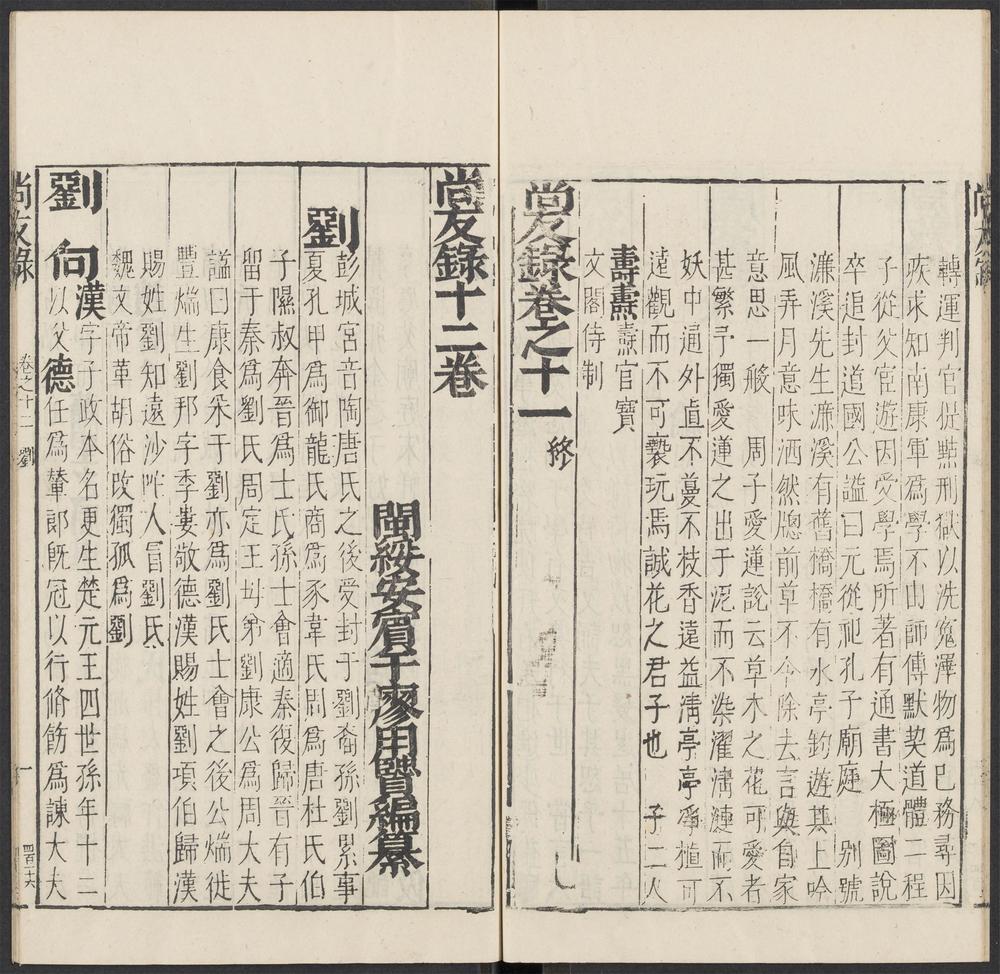 轉運判官提㸃刑獄以洗寃澤物為巳務尋因
疾求知南康軍為學不由師傅默契道體二程
子從父宦遊因受學焉所著有通書大極圖說
卒追封道國公謚曰元從祀孔子廟庭 别號
濂溪先生濂溪有舊橋橋有水亭釣遊其上吟
風弄月意味洒然牕前草不令除去言與自家
意思一般 周子愛蓮說云草木之花可愛者
甚繁予獨愛蓮之出于泥而不染濯淸漣而不
妖中通外直不蔓不枝香遠益淸亭亭凈植可
遠觀而不可褻玩焉誠花之君子也 子二人
壽燾燾官寶
文閣侍制
尚友錄卷之十一 終
尚友錄十二卷
閩綏安賔于廖用賢編纂
劉
彭城宮音陶唐氏之後受封于劉裔孫劉累事
夏孔甲為御龍氏商為豕韋氏周為唐杜氏伯
子隰叔奔晉為士氏孫士會適秦復歸晉有子
留于秦為劉氏周定王母弟劉康公為周大夫
謚曰康食采于劉亦為劉氏士會之後公煓徙
豐煓生劉邦字季婁敬德漢賜姓劉項伯歸漢
賜姓劉知遠沙陀人冒劉氏
魏文帝革胡俗改獨孤為劉
劉向 漢 字子政本名更生楚元王四世孫年十二
以父德任為輦郎旣冠以行脩飭為諫大夫
尚友錄
卷之十二 劉
一
尚友錄